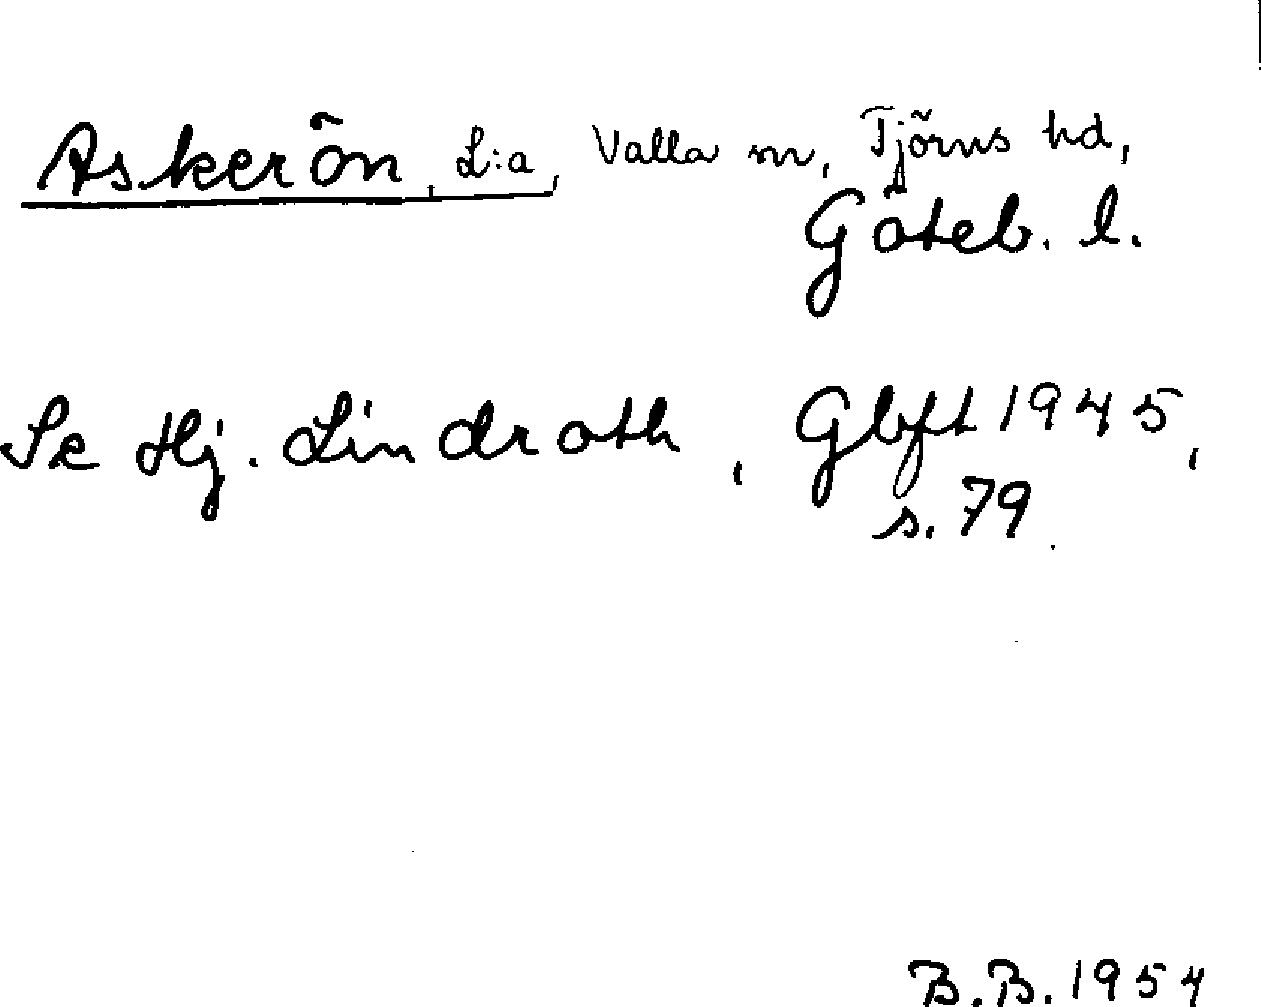 Askerön, L:a, Valla sn, Tjörns hd,
Göteb. l.
Se Hj. Lindroth, Gbft 1945,
s. 79.
B.B. 1954